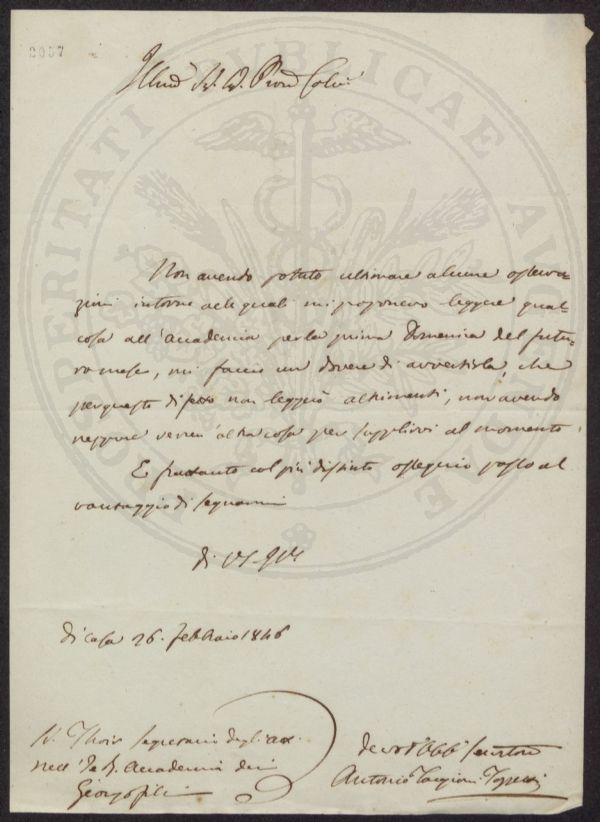 2057
Illmo Sig. Sig. Pron Colmo
Non avendo potuto ultimare alcune osserva-
zioni intorno alle quali mi proponevo leggere qual-
cosa all'Accademia per la prima Domenica del futu-
ro mese, mi faccio un dovere di avvertirla, che
per questo dì non leggerò altrimenti, non avendo
neppure verun' altra cosa per supplirvi al momento.
E frattanto col più distinto ossequio passo al
vantaggio di segnarmi
di VS. Illma
di casa 26. Febbraio 1846
Segretario degli atti
nell' I. e R. Accademia dei
Georgofili
devmo obbmo servitore
Antonio Targioni Tozzetti
PROSPERITATI PUBLICAE AUGENDAE